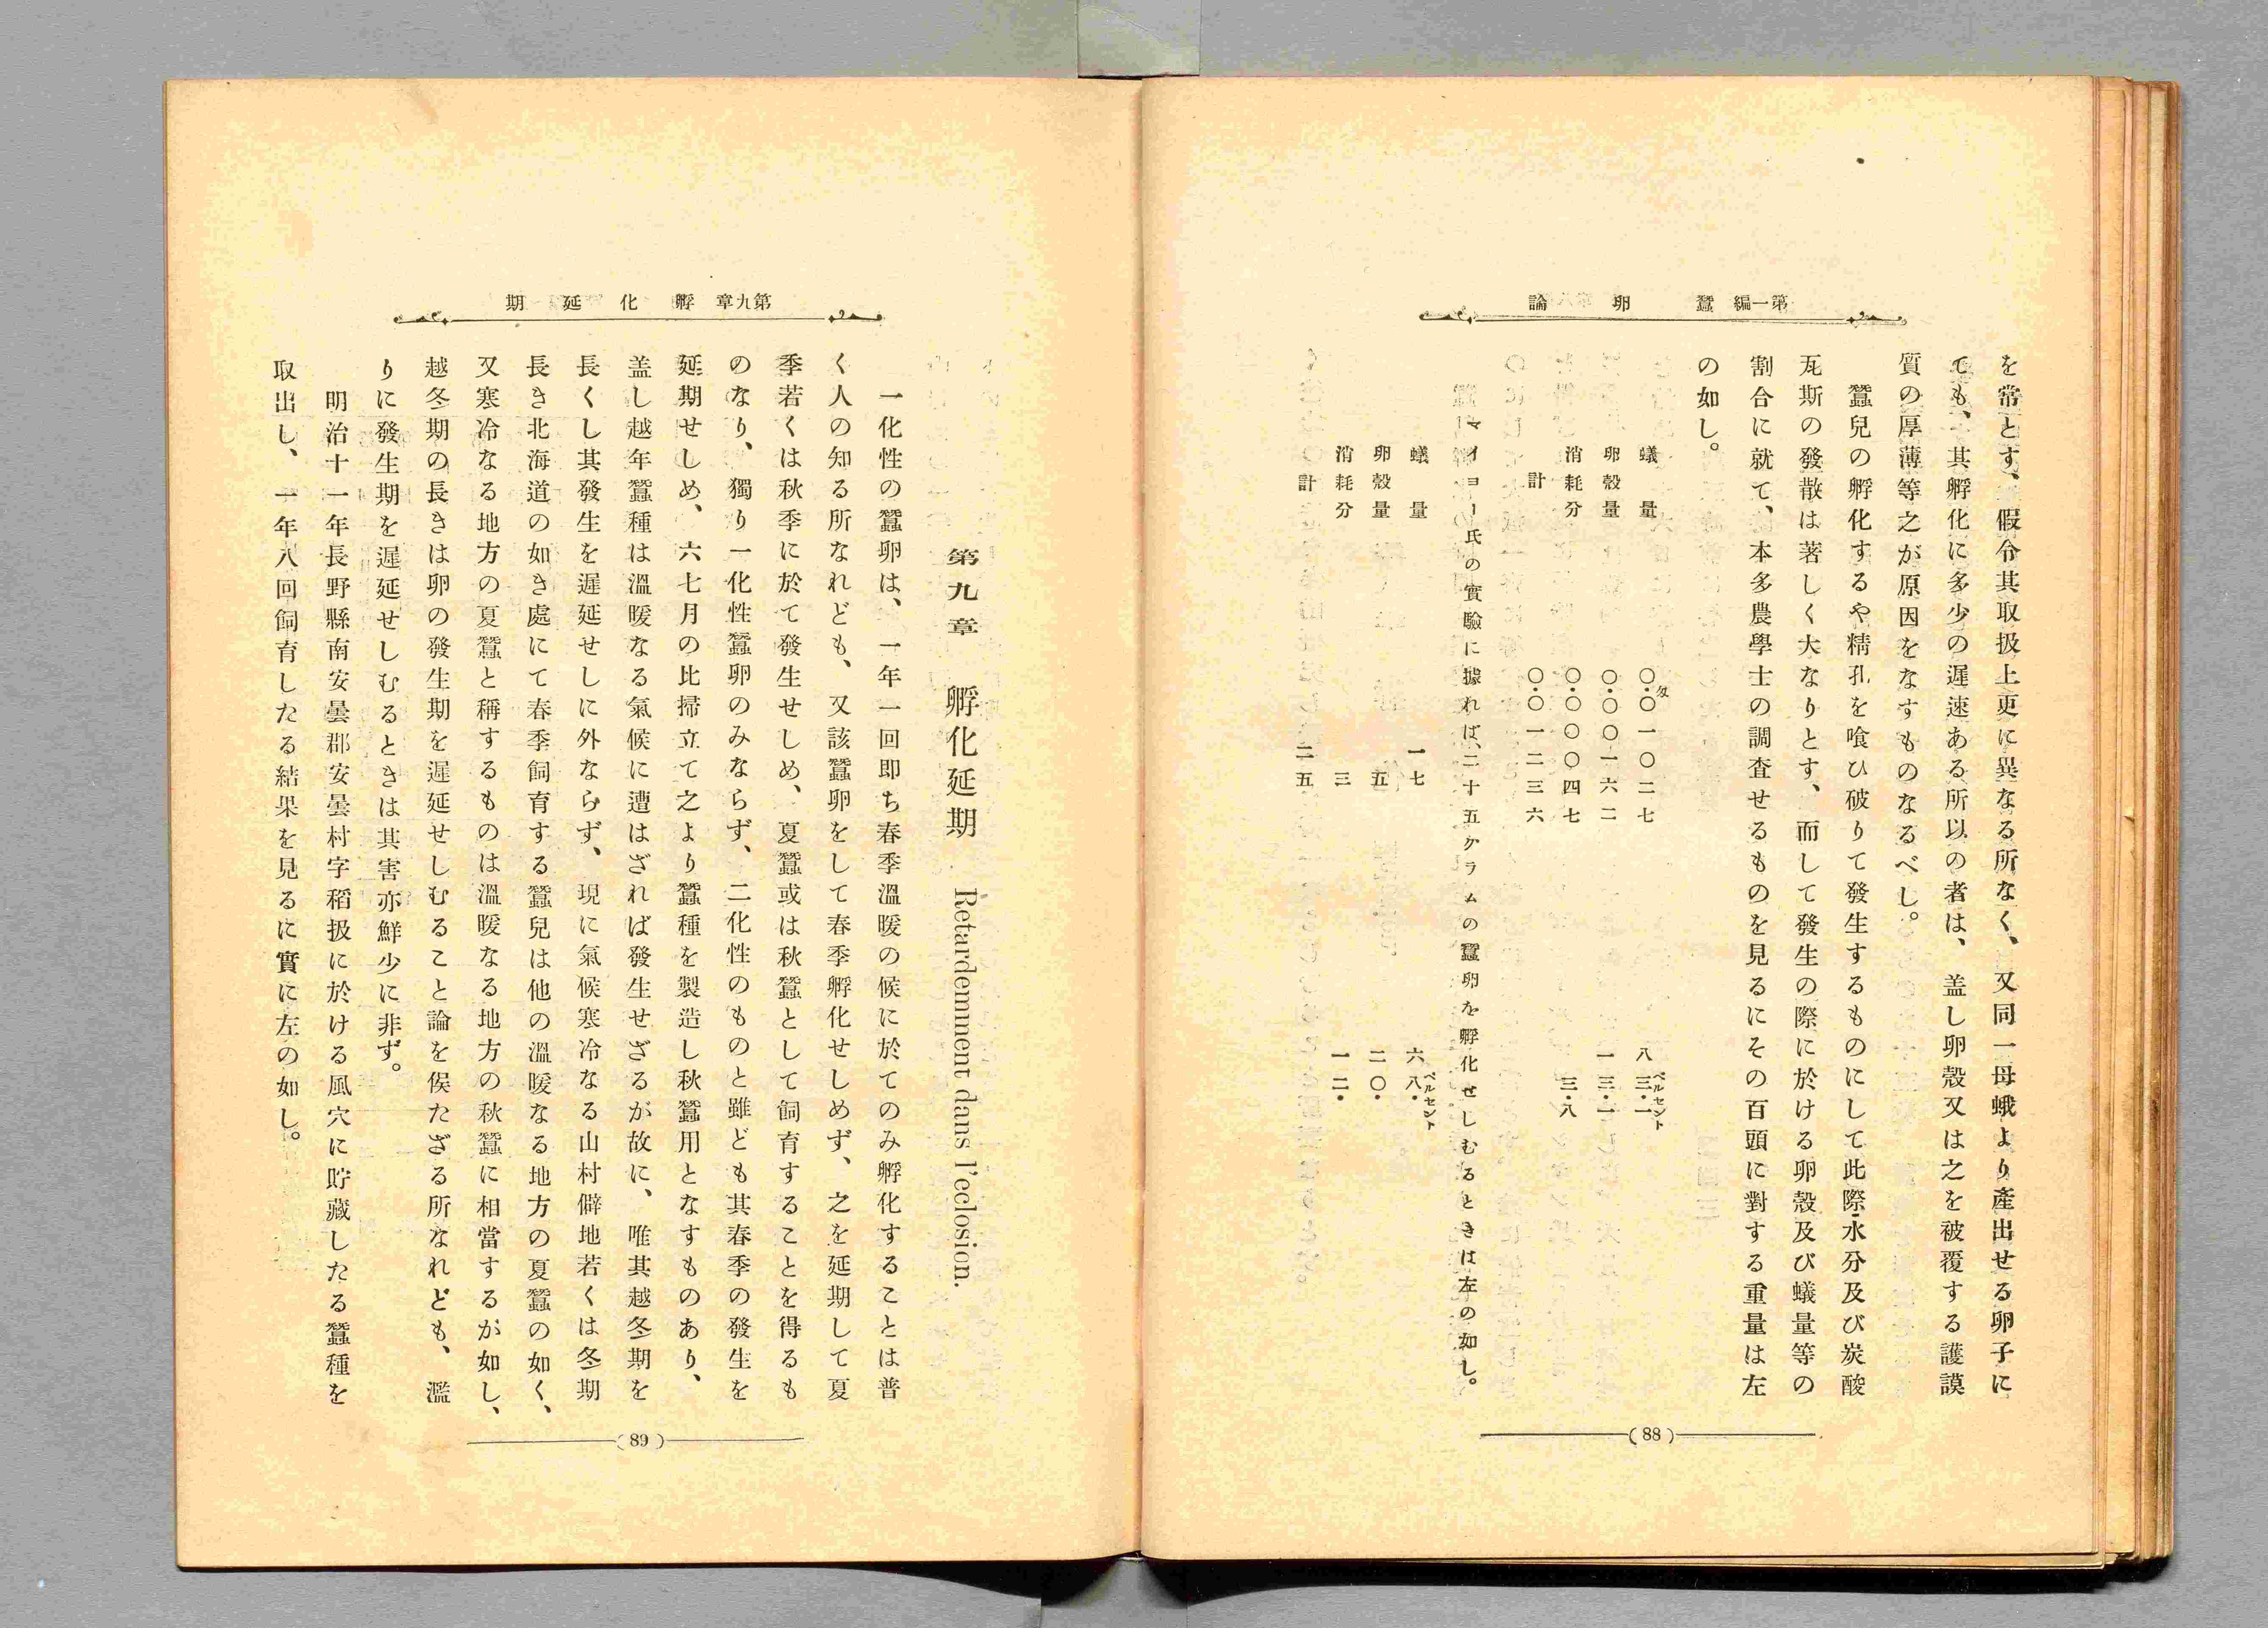 第一編　蠶　卵　論
を常とす、假令其取扱上更に異なる所なく、又同一母蛾より產出せる卵子に
ても、其孵化に多少の遲速ある所以の者は、盖し卵殼又は之を被覆する護謨
質の厚薄等之が原因をなすものなるべし。
蠶兒の孵化するや精孔を喰ひ破りて發生するものにして此際水分及び炭酸
瓦斯の發散は著しく大なりとす、而して發生の際に於ける卵殼及び蟻量等の
割合に就て、本多農學士の調査せるものを見るにその百頭に對する重量は左
の如し。
蟻量　〇・〇一〇二七匁　八三・一ペルセント
卵殼量　〇・〇〇一六二　一三・一
消耗分　〇・〇〇〇四七　三・八
計　〇・〇一二三六
マイヨー氏の實驗に據れば、二十五グラムの蠶卵を孵化せしむるときは左の如し。
蟻量　一七　六八・ペルセント
卵殼量　五　二〇・
消耗分　三　一二・
計　二五
(88)
第九章　孵化延期
第九章　孵化延期　Retardemment dans l'eclosion.
一化性の蠶卵は、一年一回即ち春季溫暖の候に於てのみ孵化することは普
く人の知る所なれども、又該蠶卵をして春季孵化せしめず、之を延期して夏
季若くは秋季に於て發生せしめ、夏蠶或は秋蠶として飼育することを得るも
のなり、獨り一化性蠶卵のみならず、二化性のものと雖ども其春季の發生を
延期せしめ、六七月の比掃立て之より蠶種を製造し秋蠶用となすものあり、
盖し越年蠶種は溫暖なる氣候に遭はざれば發生せざるが故に、唯其越冬期を
長くし其發生を遲延せしに外ならず、現に氣候寒冷なる山村僻地若くは冬期
長き北海道の如き處にて春季飼育する蠶兒は他の溫暖なる地方の夏蠶の如く、
又寒冷なる地方の夏蠶と稱するものは溫暖なる地方の秋蠶に相當するが如し、
越冬期の長きは卵の發生期を遲延せしむること論を俟たざる所なれども、濫
りに發生期を遲延せしむるときは其害亦鮮少に非ず。
明治十一年長野縣南安曇郡安曇村字稻扱に於ける風穴に貯藏したる蠶種を
取出し、一年八回飼育したる結果を見るに實に左の如し。
(89)